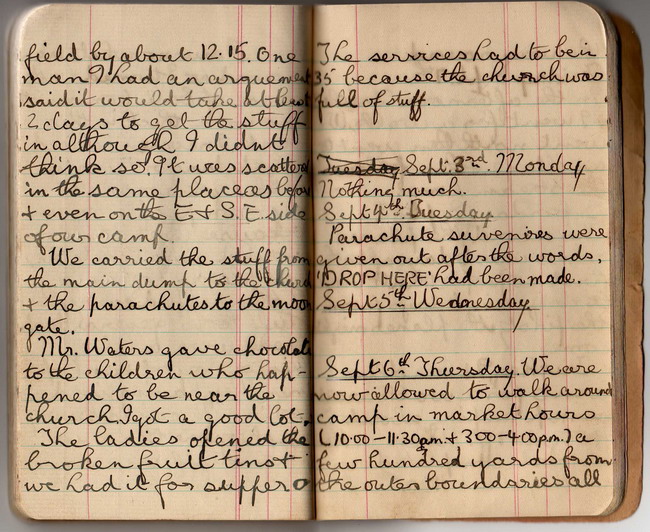 field by about 12.15. One
man I had an arguement
said it would take at least
2 days to get the stuff
in although I didnt
think so. It was scattered
in the same place as before
+ even on the E + S.E. side
of our camp.
We carried the stuff from
the main dump to the church
+ the parachutes to the moon
gate.
Mr. Waters gave chocolate
to the children who hap-
pened to be near the
church. I got a good lot.
The ladies opened the
broken fruit tins +
we had it for supper
The services had to be in
35 because the church was
full of stuff.
Tuesday Sept. 3rd. Monday
Nothing much.
Sept 4th Tuesday
Parachute suvenires were
given out after the words,
'DROP HERE' had been made.
Sept 5th Wednesday
Sept 6th Thursday. We are
now allowed to walk around
camp in market hours
(10.00-11.30am + 3.00-4.00p.m.) a
few hundred yards from
the outer boundaries all